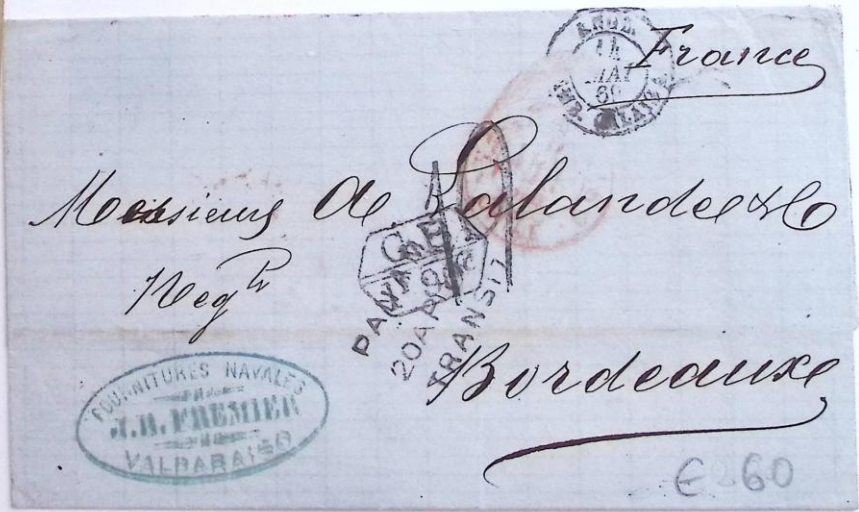 France
ANGL.
14
MAI
69
AMB. CALAIS
Messieurs De Lalande & Co
Negts
GB
PANAMA
20 AP 69
TRANSIT
Bordeaux
FOURNITURES NAVALES
J.B. FREMIER
VALPARAISO
€ 260